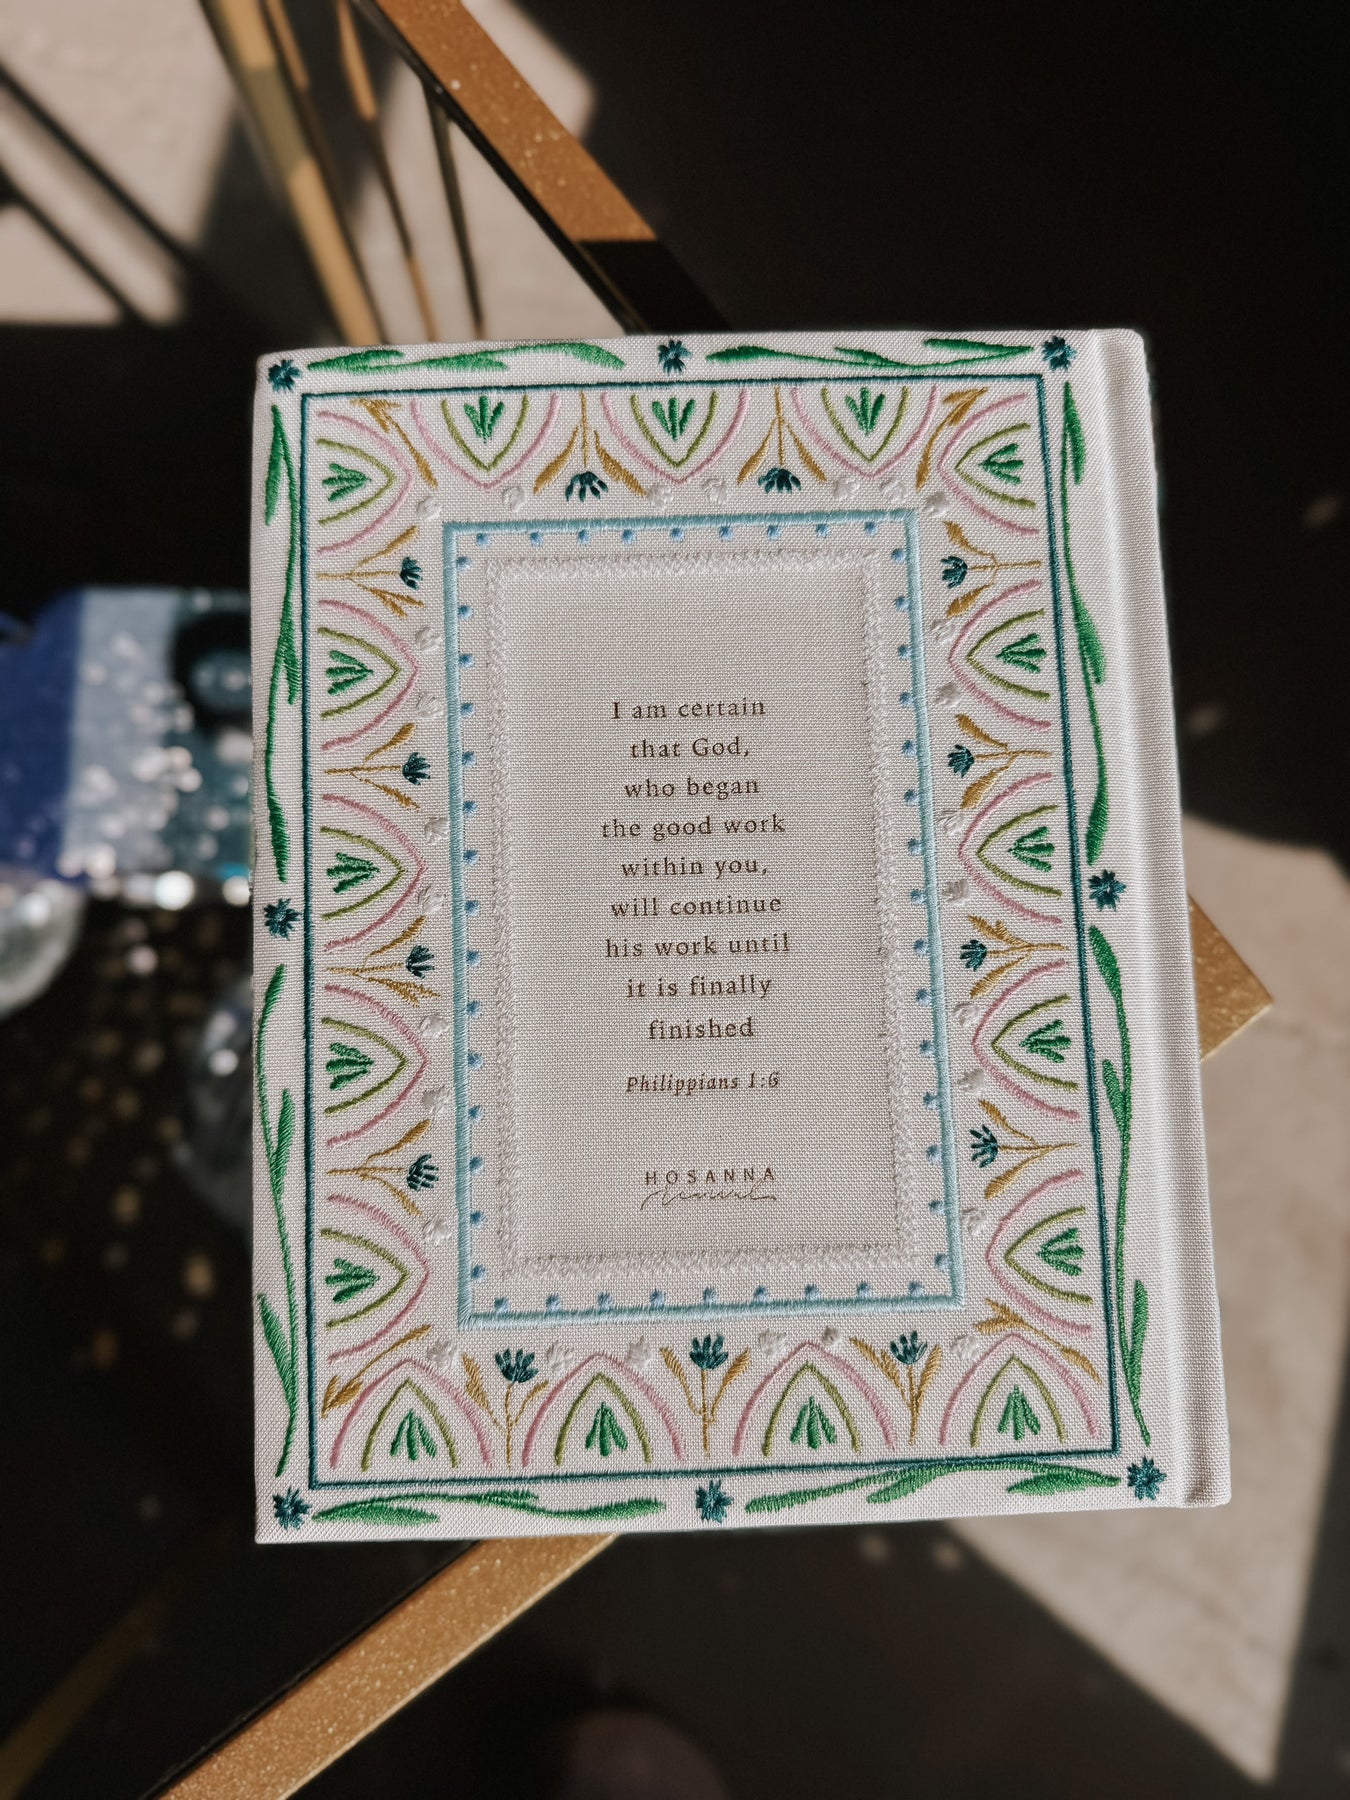 I am certain
that God,
who began
the good work
within you,
will continue
his work until
it is finally
finished
Philippians 1:6
HOSANNA
Revival